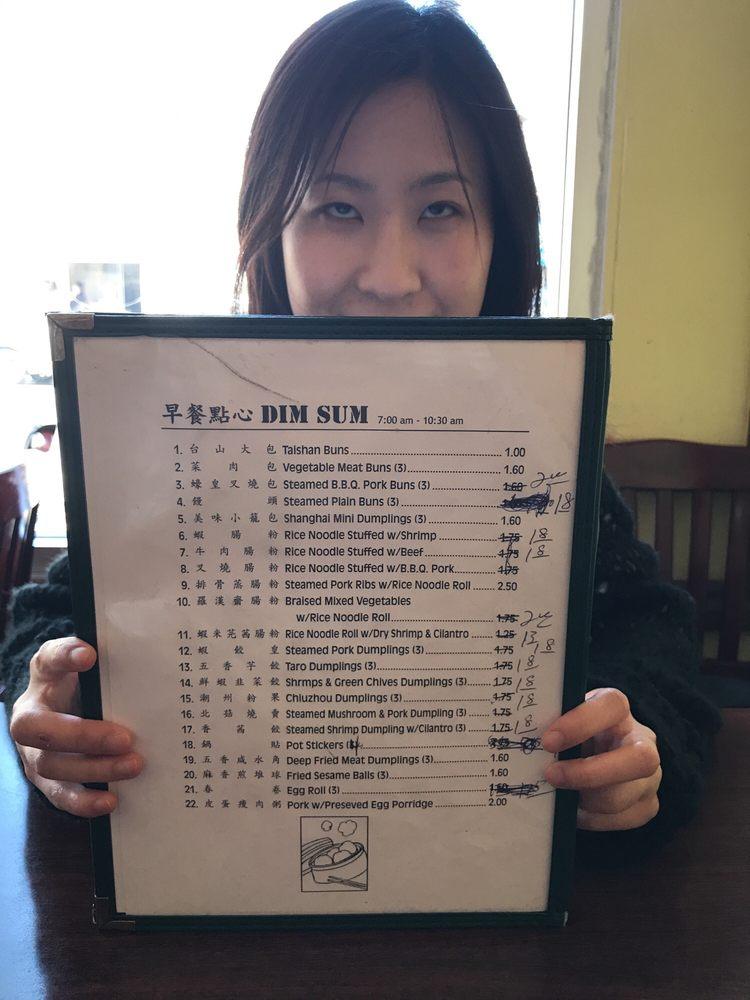 早餐點心 DIM SUM 7:00 am - 10:30 am
1. 台山大包 Taishan Buns 1.00
2. 菜肉包 Vegetable Meat Buns (3) 1.60
3. 蠔皇叉燒包 Steamed B.B.Q. Pork Buns (3) 1.60
4. 饅頭 Steamed Plain Buns (3) 18
5. 美味小籠包 Shanghai Mini Dumplings (3) 1.60
6. 蝦腸粉 Rice Noodle Stuffed w/Shrimp 1.75 18
7. 牛肉腸粉 Rice Noodle Stuffed w/Beef 1.75 18
8. 叉燒腸粉 Rice Noodle Stuffed w/B.B.Q. Pork 1.75
9. 排骨蒸腸粉 Steamed Pork Ribs w/Rice Noodle Roll 2.50
10. 羅漢齋腸粉 Braised Mixed Vegetables
w/Rice Noodle Roll 1.75
11. 蝦米芫茜腸粉 Rice Noodle Roll w/Dry Shrimp & Cilantro 1.25 13
12. 蝦餃皇 Steamed Pork Dumplings (3) 1.75 18
13. 五香芋餃 Taro Dumplings (3) 1.75 18
14. 鮮蝦韭菜餃 Shrmps & Green Chives Dumplings (3) 1.75 18
15. 潮州粉果 Chiuzhou Dumplings (3) 1.75 18
16. 北菇燒賣 Steamed Mushroom & Pork Dumpling (3) 1.75
17. 香茜餃 Steamed Shrimp Dumpling w/Cilantro (3) 1.75 18
18. 鍋貼 Pot Stickers
19. 五香咸水角 Deep Fried Meat Dumplings (3) 1.60
20. 麻香煎堆球 Fried Sesame Balls (3) 1.60
21. 春卷 Egg Roll (3)
22. 皮蛋瘦肉粥 Pork w/Preseved Egg Porridge 2.00